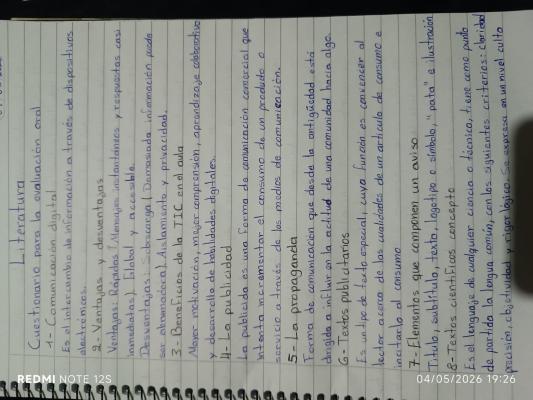 Literatura
Cuestionario para la evaluación oral
1- Comunicación digital
Es el intercambio de información a través de dispositivos
electrónicos.
2- Ventajas y desventajas
Ventajas: Rápidos (Mensajes instantáneos y respuestas casi
inmediatas) Global y accesible.
Desventajas: Sobrecarga (Demasiada información puede
ser abrumadora) Aislamiento y privacidad.
3- Beneficios de la TIC en el aula
Mayor motivación, mejor comprensión, aprendizaje colaborativo
y desarrollo de habilidades digitales.
4- La publicidad
La publicidad es una forma de comunicación comercial que
intenta incrementar el consumo de un producto o
servicio a través de los medios de comunicación.
5- La propaganda
Forma de comunicación que desde la antigüedad está
dirigida a influir en la actitud de una comunidad hacia algo.
6- Textos publicitarios
Es un tipo de texto especial, cuya función es convencer al
lector acerca de las cualidades de un artículo de consumo e
incitarlo al consumo
7- Elementos que componen un aviso
Título, subtítulo, texto, logotipo o símbolo, "pata" e ilustración
8- Textos científicos concepto
Es el lenguaje de cualquier ciencia o técnica, tiene como punto
de partida la lengua común, con los siguientes criterios: claridad
precisión, objetividad y rigor lógico. Se expresa en un nivel culto
REDMI NOTE 12S
04/05/2026 19:26